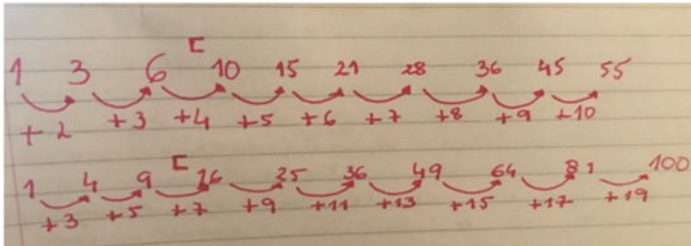 1 3 6 [ 10 15 21 28 36 45 55
+2 +3 +4 +5 +6 +7 +8 +9 +10
1 4 9 [ 16 25 36 49 64 81 100
+3 +5 +7 +9 +11 +13 +15 +17 +19